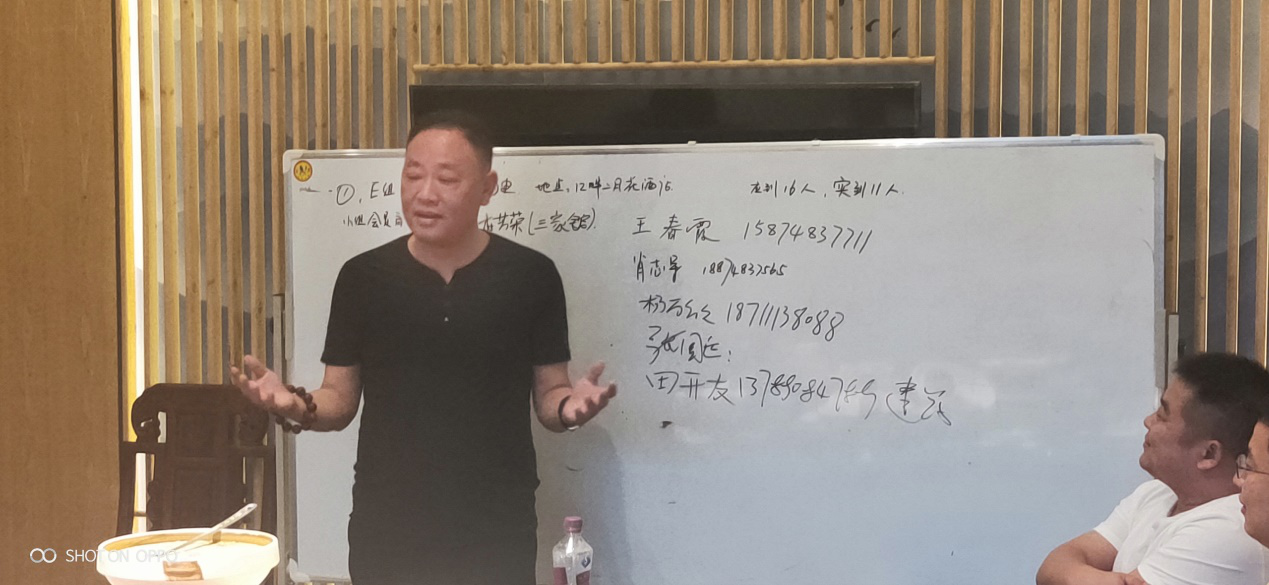 一. ①, E组 地点: 12畔二月花酒店 应到16人, 实到11人.
小组会员 (三家馆).
王春霞 15874837711
肖志军 18874837565
杨 18711138088
张国运:
田开友 13789084789 建
SHOT ON OPPO